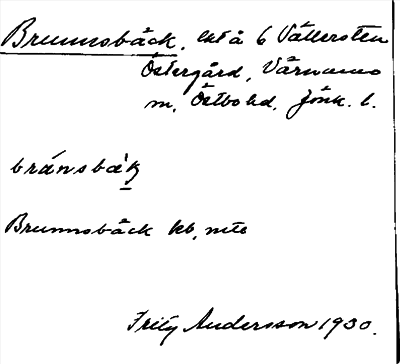 Brunnsbäck, lht å 6 Vällersten
Östergård, Värnamo
m, Östbo hd, Jönk. l.
bránsbàk
Brunnsbäck kb, mtb
Fritz Andersson 1930.